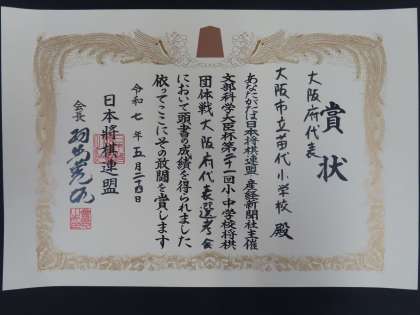 賞状
大阪府代表
大阪市立苗代小学校 殿
あなたがたは日本将棋連盟 産経新聞社主催
文部科学大臣杯第二十一回小・中学校将棋
団体戦大阪府代表選考会
において頭書の成績を得られました
依ってここにその敢闘を賞します
令和七年五月二十四日
日本将棋連盟
会長 羽生善治